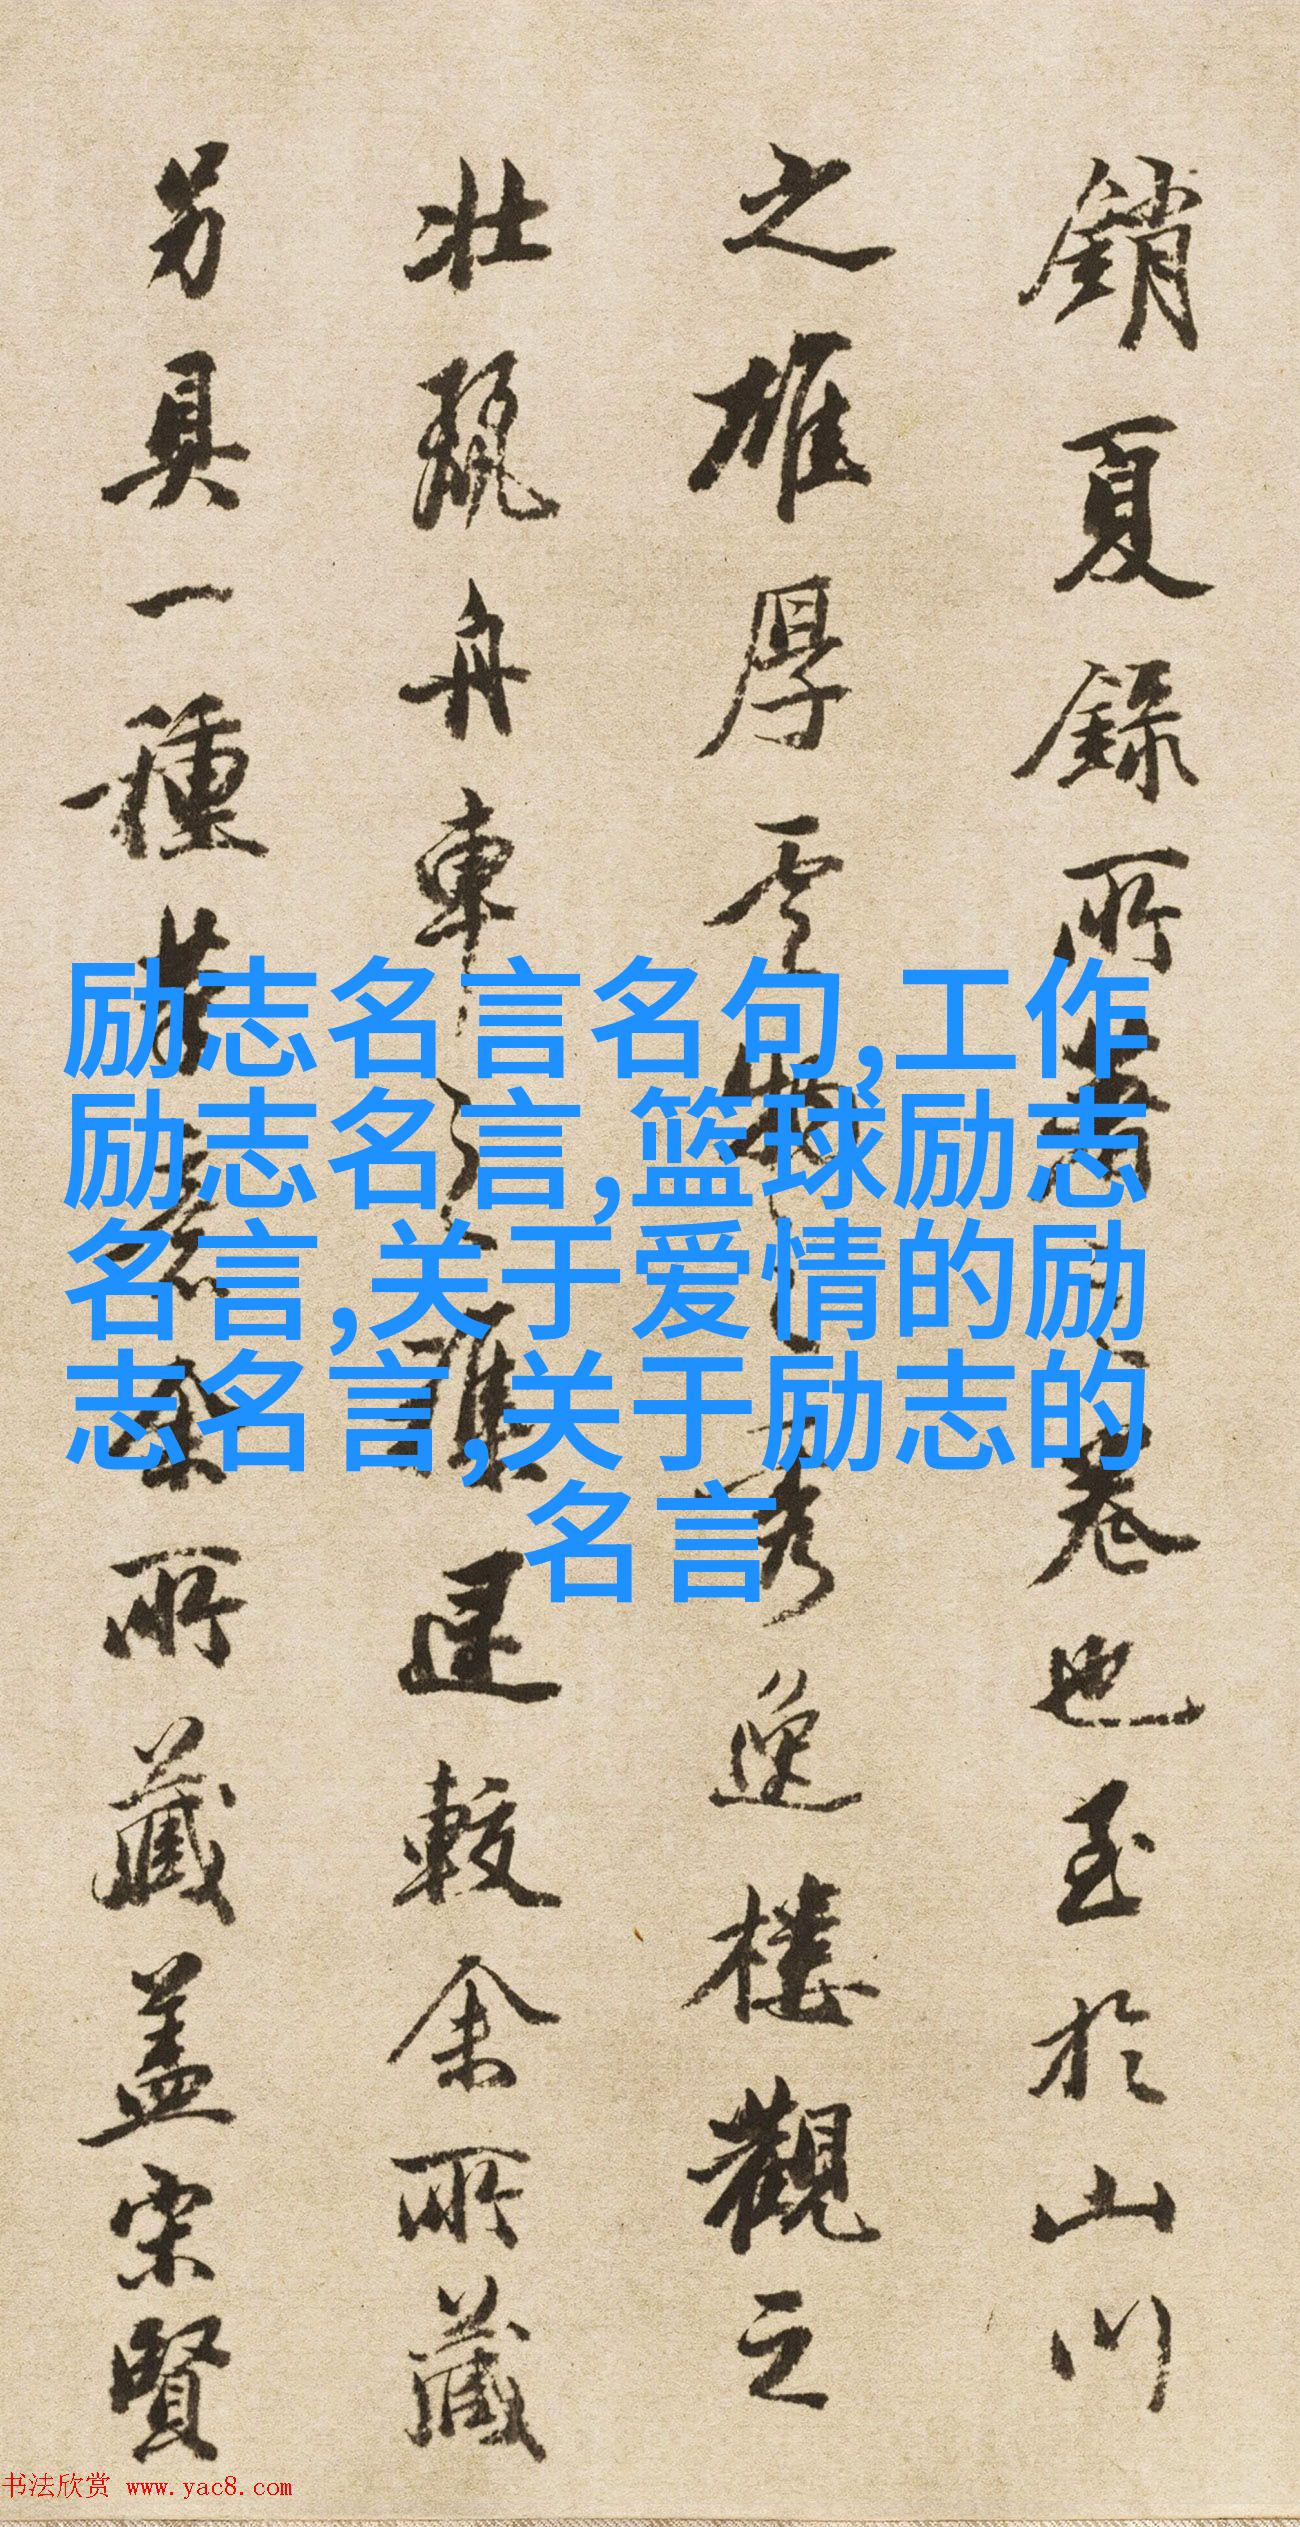 銷夏錄所卷也至於山川
之雄厚雲物之秀逸樓觀之
壯麗舟車之較余所藏
另具一種筆意余所藏蓋宋賢
励志名言名句,工作
励志名言,篮球励志
名言,关于爱情的励
志名言,关于励志的
名言
书法欣赏 www.yac8.com